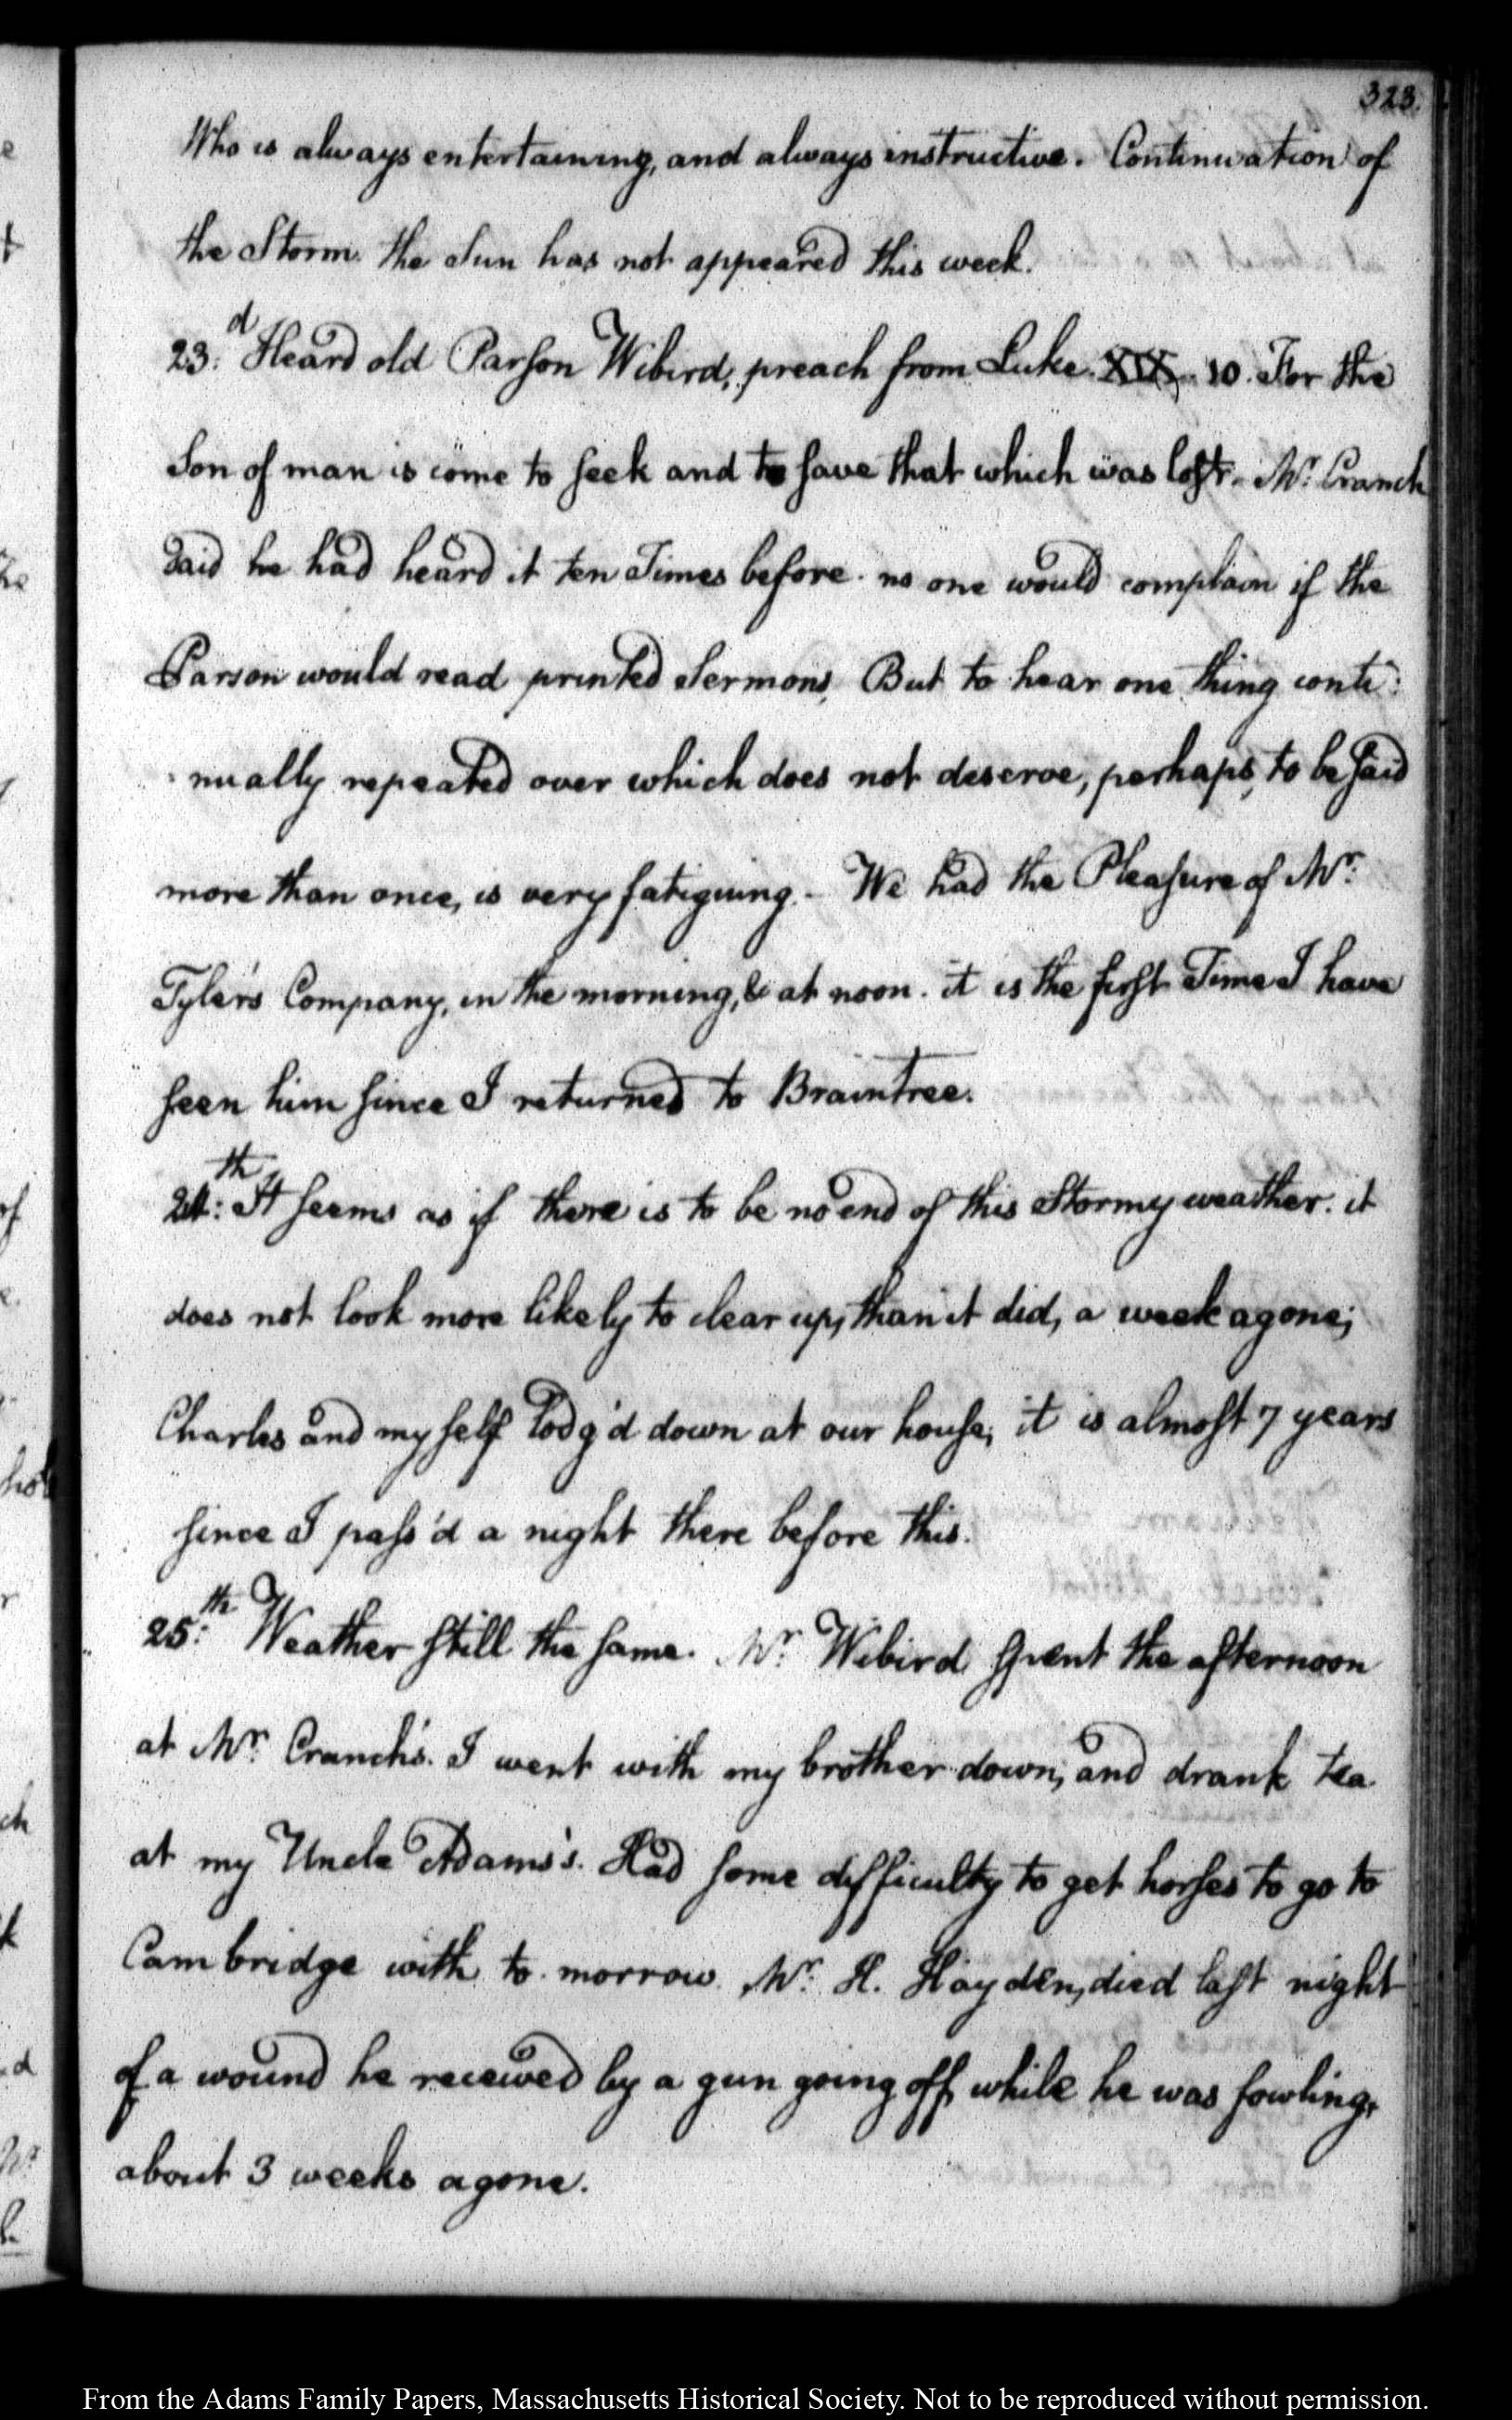 323.
Who is always entertaining, and always instructive. Continuation of
the Storm. the Sun has not appeared this week.
23.d Heard old Parson Wibird, preach from Luke. XIX. 10. For the
Son of man is come to seek and to save that which was lost. Mr. Cranch
said he had heard it ten Times before. no one would complain if the
Parson would read printed Sermons, But to hear one thing conti:
nually repeated over which does not deserve, perhaps, to be said
more than once, is very fatiguing. - We had the Pleasure of Mr.
Tyler's Company, in the morning, & at noon. it is the first Time I have
seen him since I returned to Braintree.
24:th It seems as if there is to be no end of this Stormy weather. it
does not look more likely to clear up, than it did, a week agone;
Charles and myself lodg'd down at our house, it is almost 7 years
since I pass'd a night there before this.
25:th Weather still the same. Mr. Wibird, spent the afternoon
at Mr. Cranch's. I went with my brother down, and drank tea
at my Uncle Adams's. Had some difficulty to get horses to go to
Cambridge with to-morrow. Mr. H. Hayden, died last night
of a wound he received by a gun going off, while he was fowling,
about 3 weeks agone.
From the Adams Family Papers, Massachusetts Historical Society. Not to be reproduced without permission.